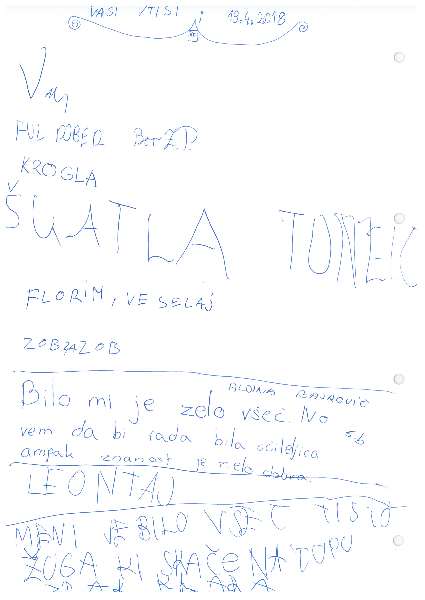 VAŠI VTISI 19.4.2018
FUL DOBER
KROGLA
ŠUATLA TONEIC
FLORIM, VESELAJ
ZOBZAZOB
Bilo mi je zelo všeč. No
vem da bi rada bila učiteljica
ampak znanost je zelo dobra.
LEONTAJ
MENI JE BILO VŠEČ TISTO
ŽOGA KI SKAČE NA TOPU